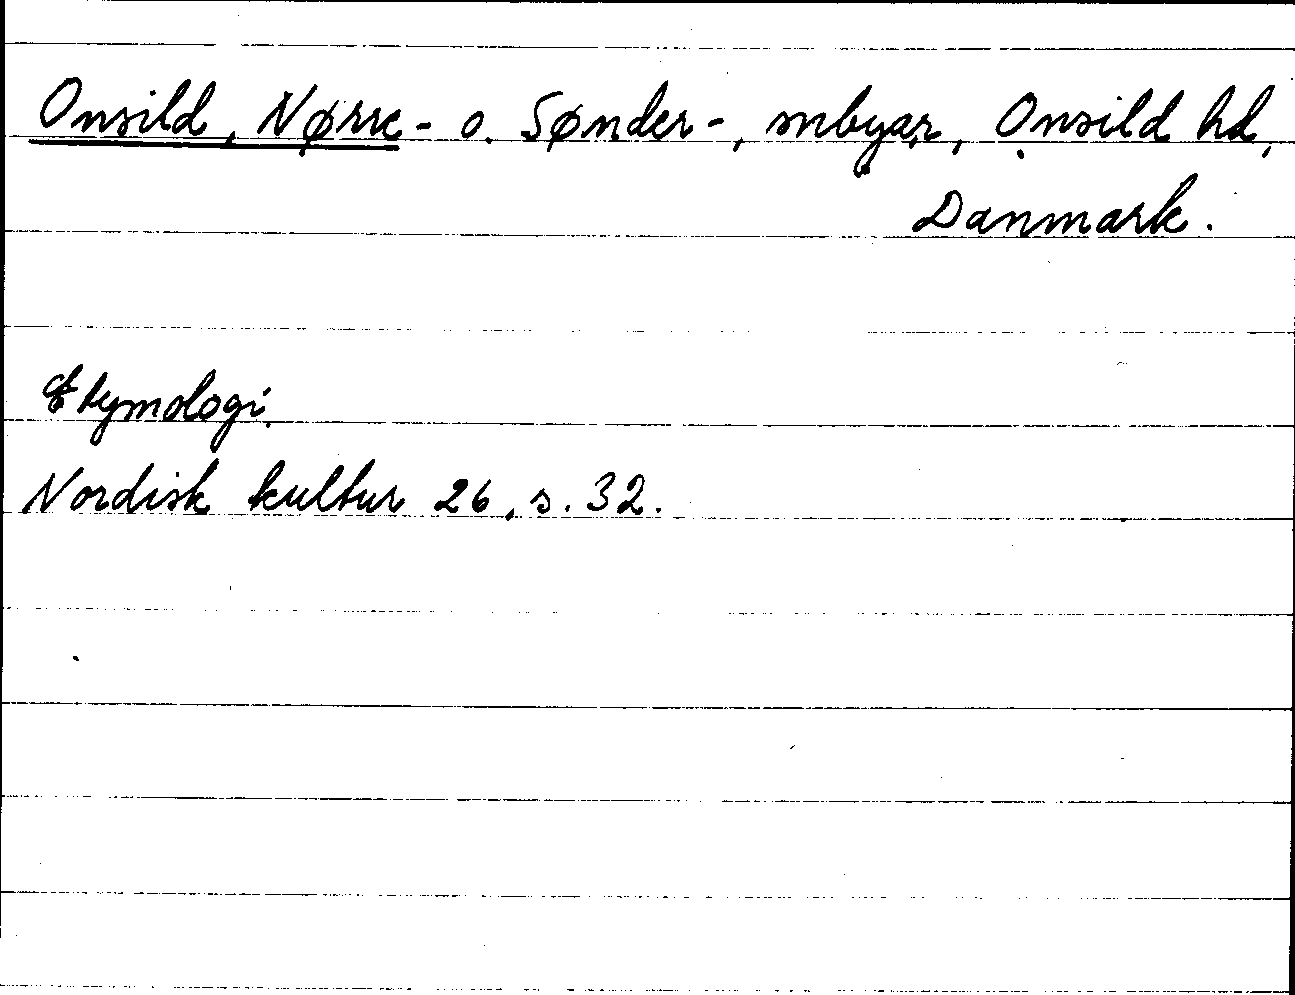 Onsild, Nørre- o. Sønder-, snbyar, Onsild hd,
Danmark.
Etymologi.
Nordisk kultur 26, s. 32.